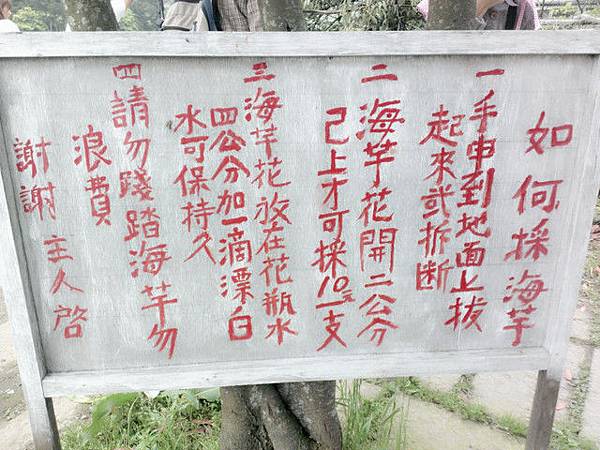 如何採海芋
一手申到地面上拔
起來或拆断
二海芋花開二公分
己上才可採10元一支
三海芋花放在花瓶水
四公分加一滴漂白
水可保持久
四請勿踐踏海芋勿
浪費
謝謝 主人啓